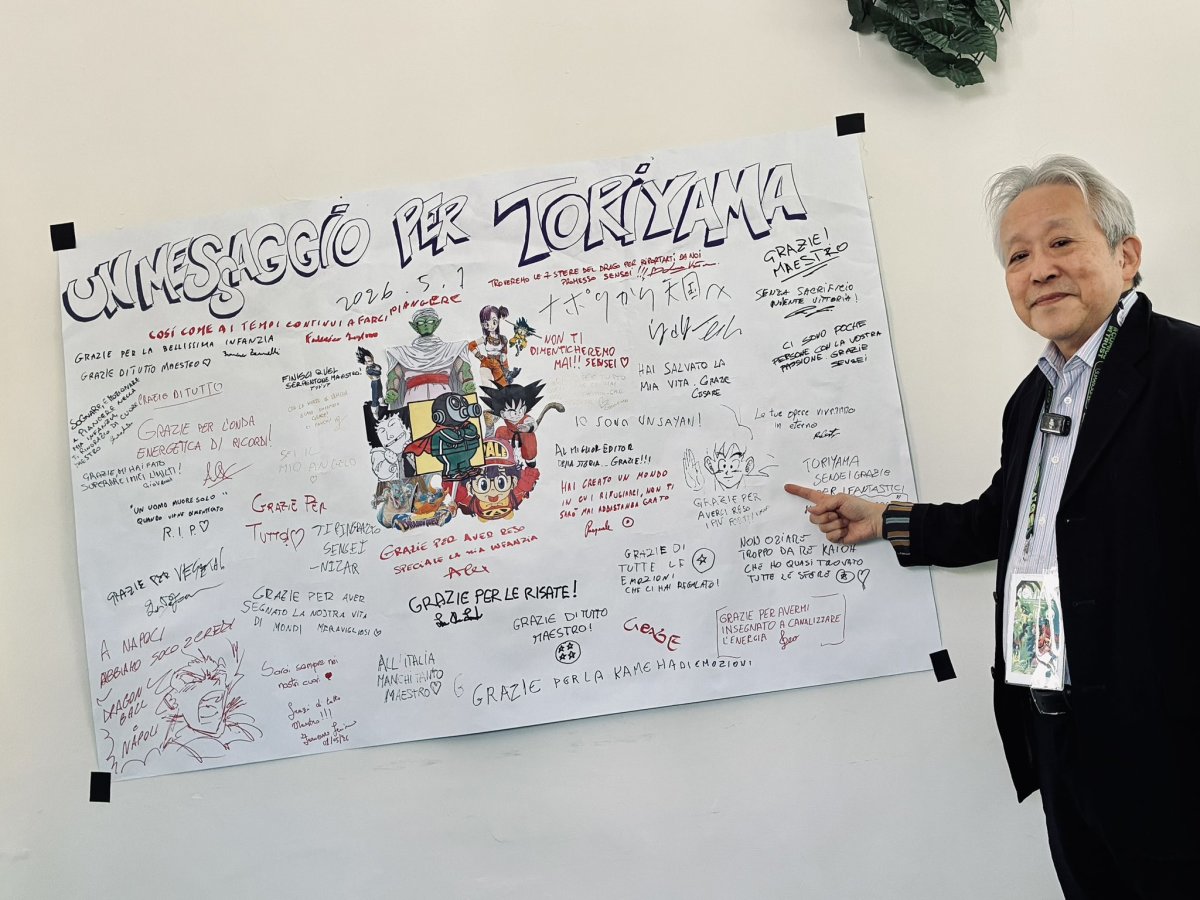 UN MESSAGGIO PER TORIYAMA
2026.5.1
TROVEREMO LE 7 SFERE DEL DRAGO PER RIPORTARTI DA NOI
PROMESSO SENSEI!!!
COSÍ COME AI TEMPI CONTINUI A FARCI PIANGERE
ナポリから天国へ
GRAZIE!
MAESTRO
GRAZIE PER LA BELLISSIMA INFANZIA
GRAZIE DI TUTTO MAESTRO
SENZA SACRIFICIO
NIENTE VITTORIA!
CI SONO POCHE
PERSONE CON LA VOSTRA
PASSIONE. GRAZIE
SENSEI
FINISCI QUEL
SERPENTONE MAESTRO!
NON TI
DIMENTICHEREMO
MAI!! SENSEI
HAI SALVATO LA
MIA VITA. GRAZIE
CESARE
GRAZIE DI TUTTO
GRAZIE PER L'ONDA
ENERGETICA DI RICORDI!
SEI IL
MIO ANGELO
IO SONO UN SAYAN!
Le tue opere vivranno
in eterno
GRAZIE, MI HAI FATO
SUPERARE I MIEI LIMITI!
Giovanni
AL MIGLIOR EDITOR
DELLA STORIA. GRAZIE!!!
HAI CREATO UN MONDO
IN CUI RIFUGIARCI, NON TI
SARÒ MAI ABBASTANZA GRATO
Pasquale
GRAZIE PER
AVERCI RESO
I PIÙ FORTI!
TORIYAMA
SENSEI GRAZIE
PER I FANTASTICI
"UN UOMO MUORE SOLO
QUANDO VIENE DIMENTICATO"
R.I.P
GRAZIE PER
TUTTO!
TI RINGRAZIO
SENSEI
-NIZAR
GRAZIE PER AVER RESO
SPECIALE LA MIA INFANZIA
Alex
GRAZIE PER VEGETA!
GRAZIE PER AVER
SEGNATO LA NOSTRA VITA
DI MONDI MERAVIGLIOSI
GRAZIE PER LE RISATE!
GRAZIE DI
TUTTE LE
EMOZIONI
CHE CI HAI REGALATO!
NON OZIARE
TROPPO DA RE KAIOH
CHE HO QUASI TROVATO
TUTTE LE SFERE
GRAZIE DI TUTTO
MAESTRO!
GRAZIE
GRAZIE PER AVERMI
INSEGNATO A CANALIZZARE
L'ENERGIA
A NAPOLI
ABBIAMO SOLO 2 CREDI
DRAGON
BALL
E
NAPOLI
Sarai sempre nei
nostri cuori
ALL'ITALIA
MANCHI TANTO
MAESTRO
GRAZIE PER LA KAMEHA DI EMOZIONI
Grazie di tutto
Maestro!!!